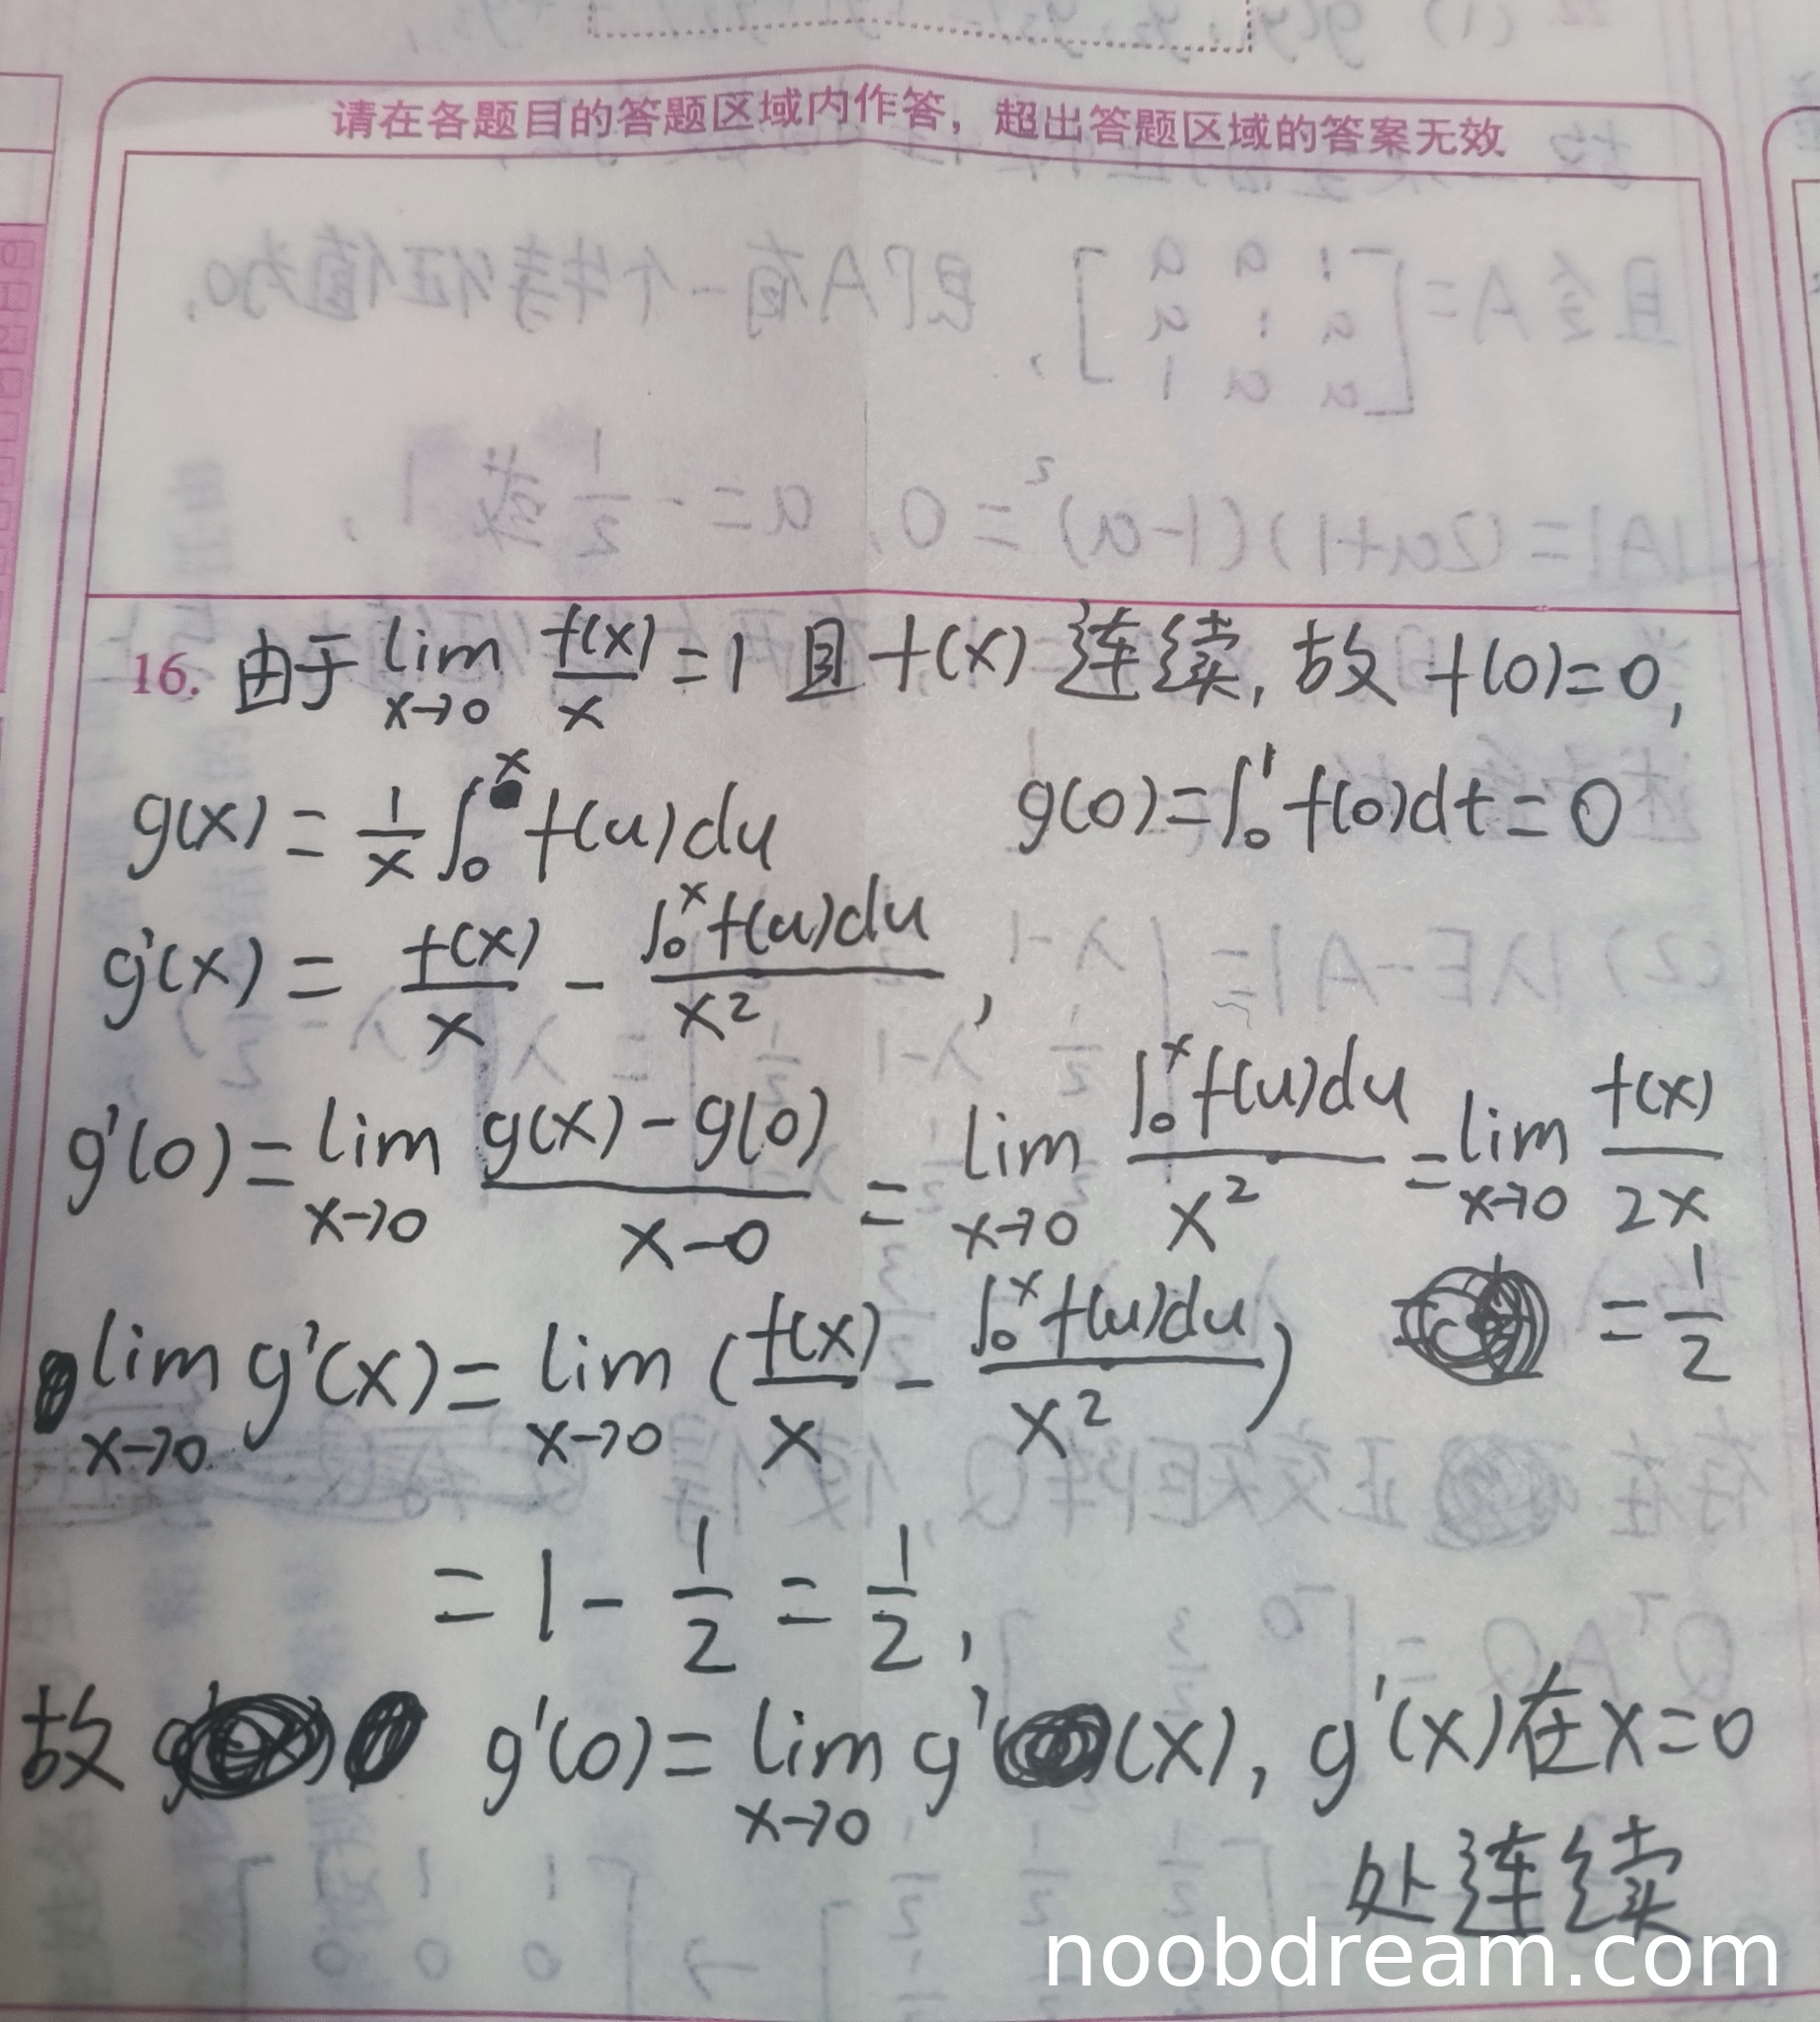 请在各题目的答题区域内作答，超出答题区域的答案无效
16. 由于 lim x→0 f(x)/x = 1 且 f(x) 连续, 故 f(0)=0,
g(x) = 1/x ∫₀ˣ f(u)du    g(0)=∫₀¹ f(0)dt=0
g'(x) = f(x)/x - ∫₀ˣ f(u)du / x² ,
g'(0) = lim x→0 (g(x)-g(0))/(x-0) = lim x→0 ∫₀ˣ f(u)du / x² = lim x→0 f(x)/2x
= 1/2
lim x→0 g'(x) = lim x→0 ( f(x)/x - ∫₀ˣ f(u)du / x² )
= 1 - 1/2 = 1/2 ,
故 g'(0) = lim x→0 g'(x), g'(x)在x=0
处连续
noobdream.com